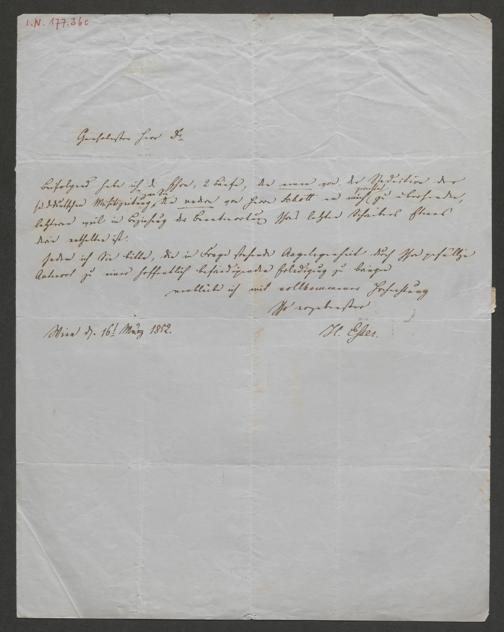 I.N. 177.360
Geehrtester Herr Dr
Beifolgend habe ich d. Ehre, 2 Briefe, der eine von der Redaktion der
süddeutschen Musikzeitung, der andere von Herrn Schott an mich zu übersenden,
letzteren weil in Beziehung der Beantwortung Ihres letzten Schreibens Etwas
darin enthalten ist.
Indem ich Sie bitte, die in Frage stehende Angelegenheit durch Ihre gefällige
Antwort zu einer hoffentlich befriedigenden Erledigung zu bringen
verbleibe ich mit vollkommener Hochachtung
Ihr ergebenster
Wien d. 16t März 1852.
H. Esser.